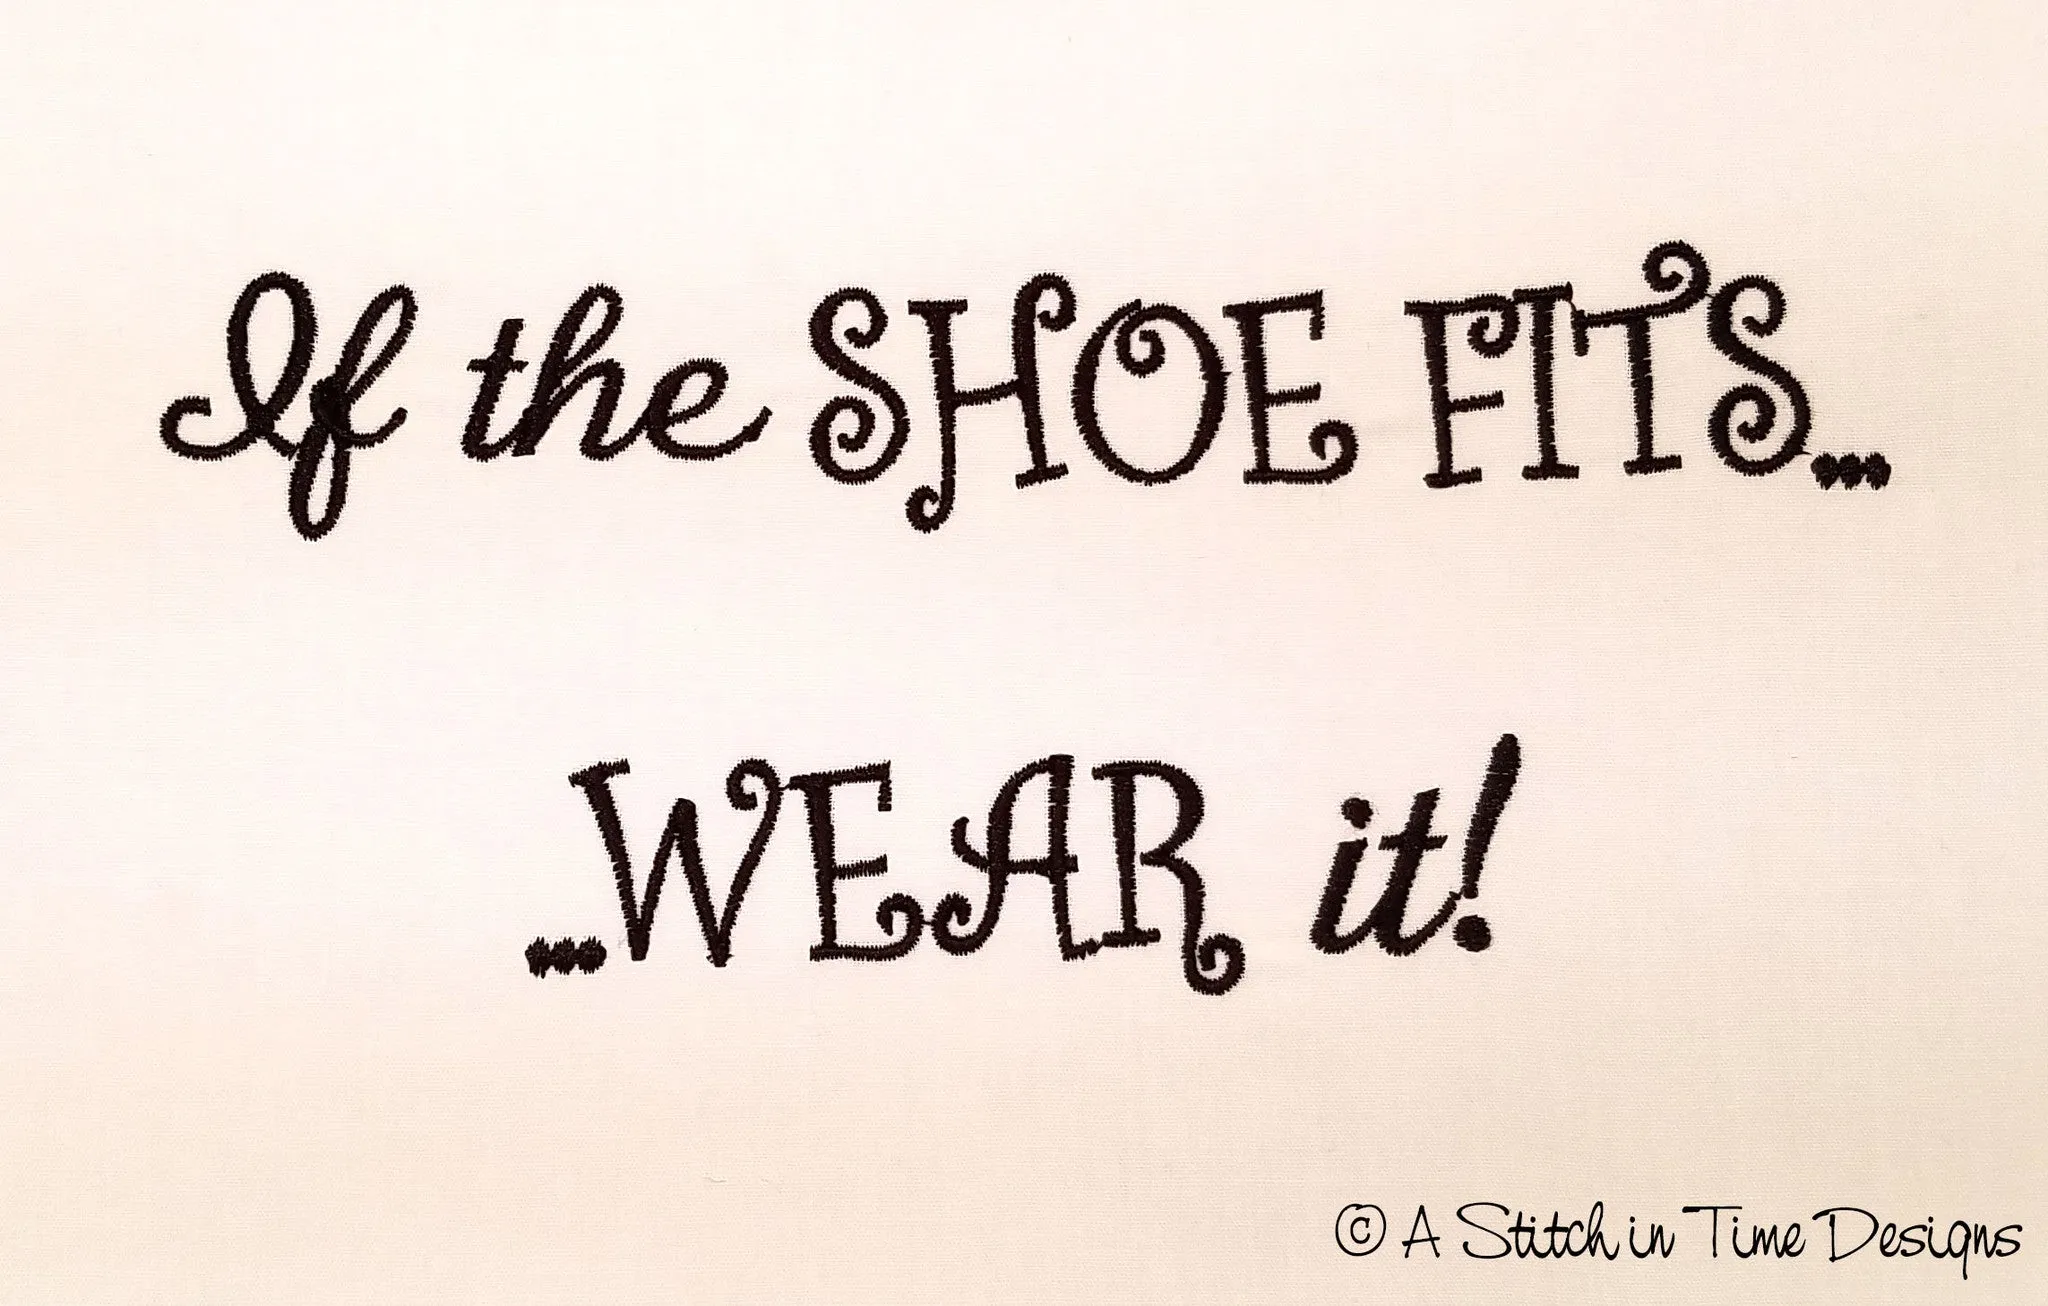 If the SHOE FITS...
...WEAR it!
© A Stitch in Time Designs